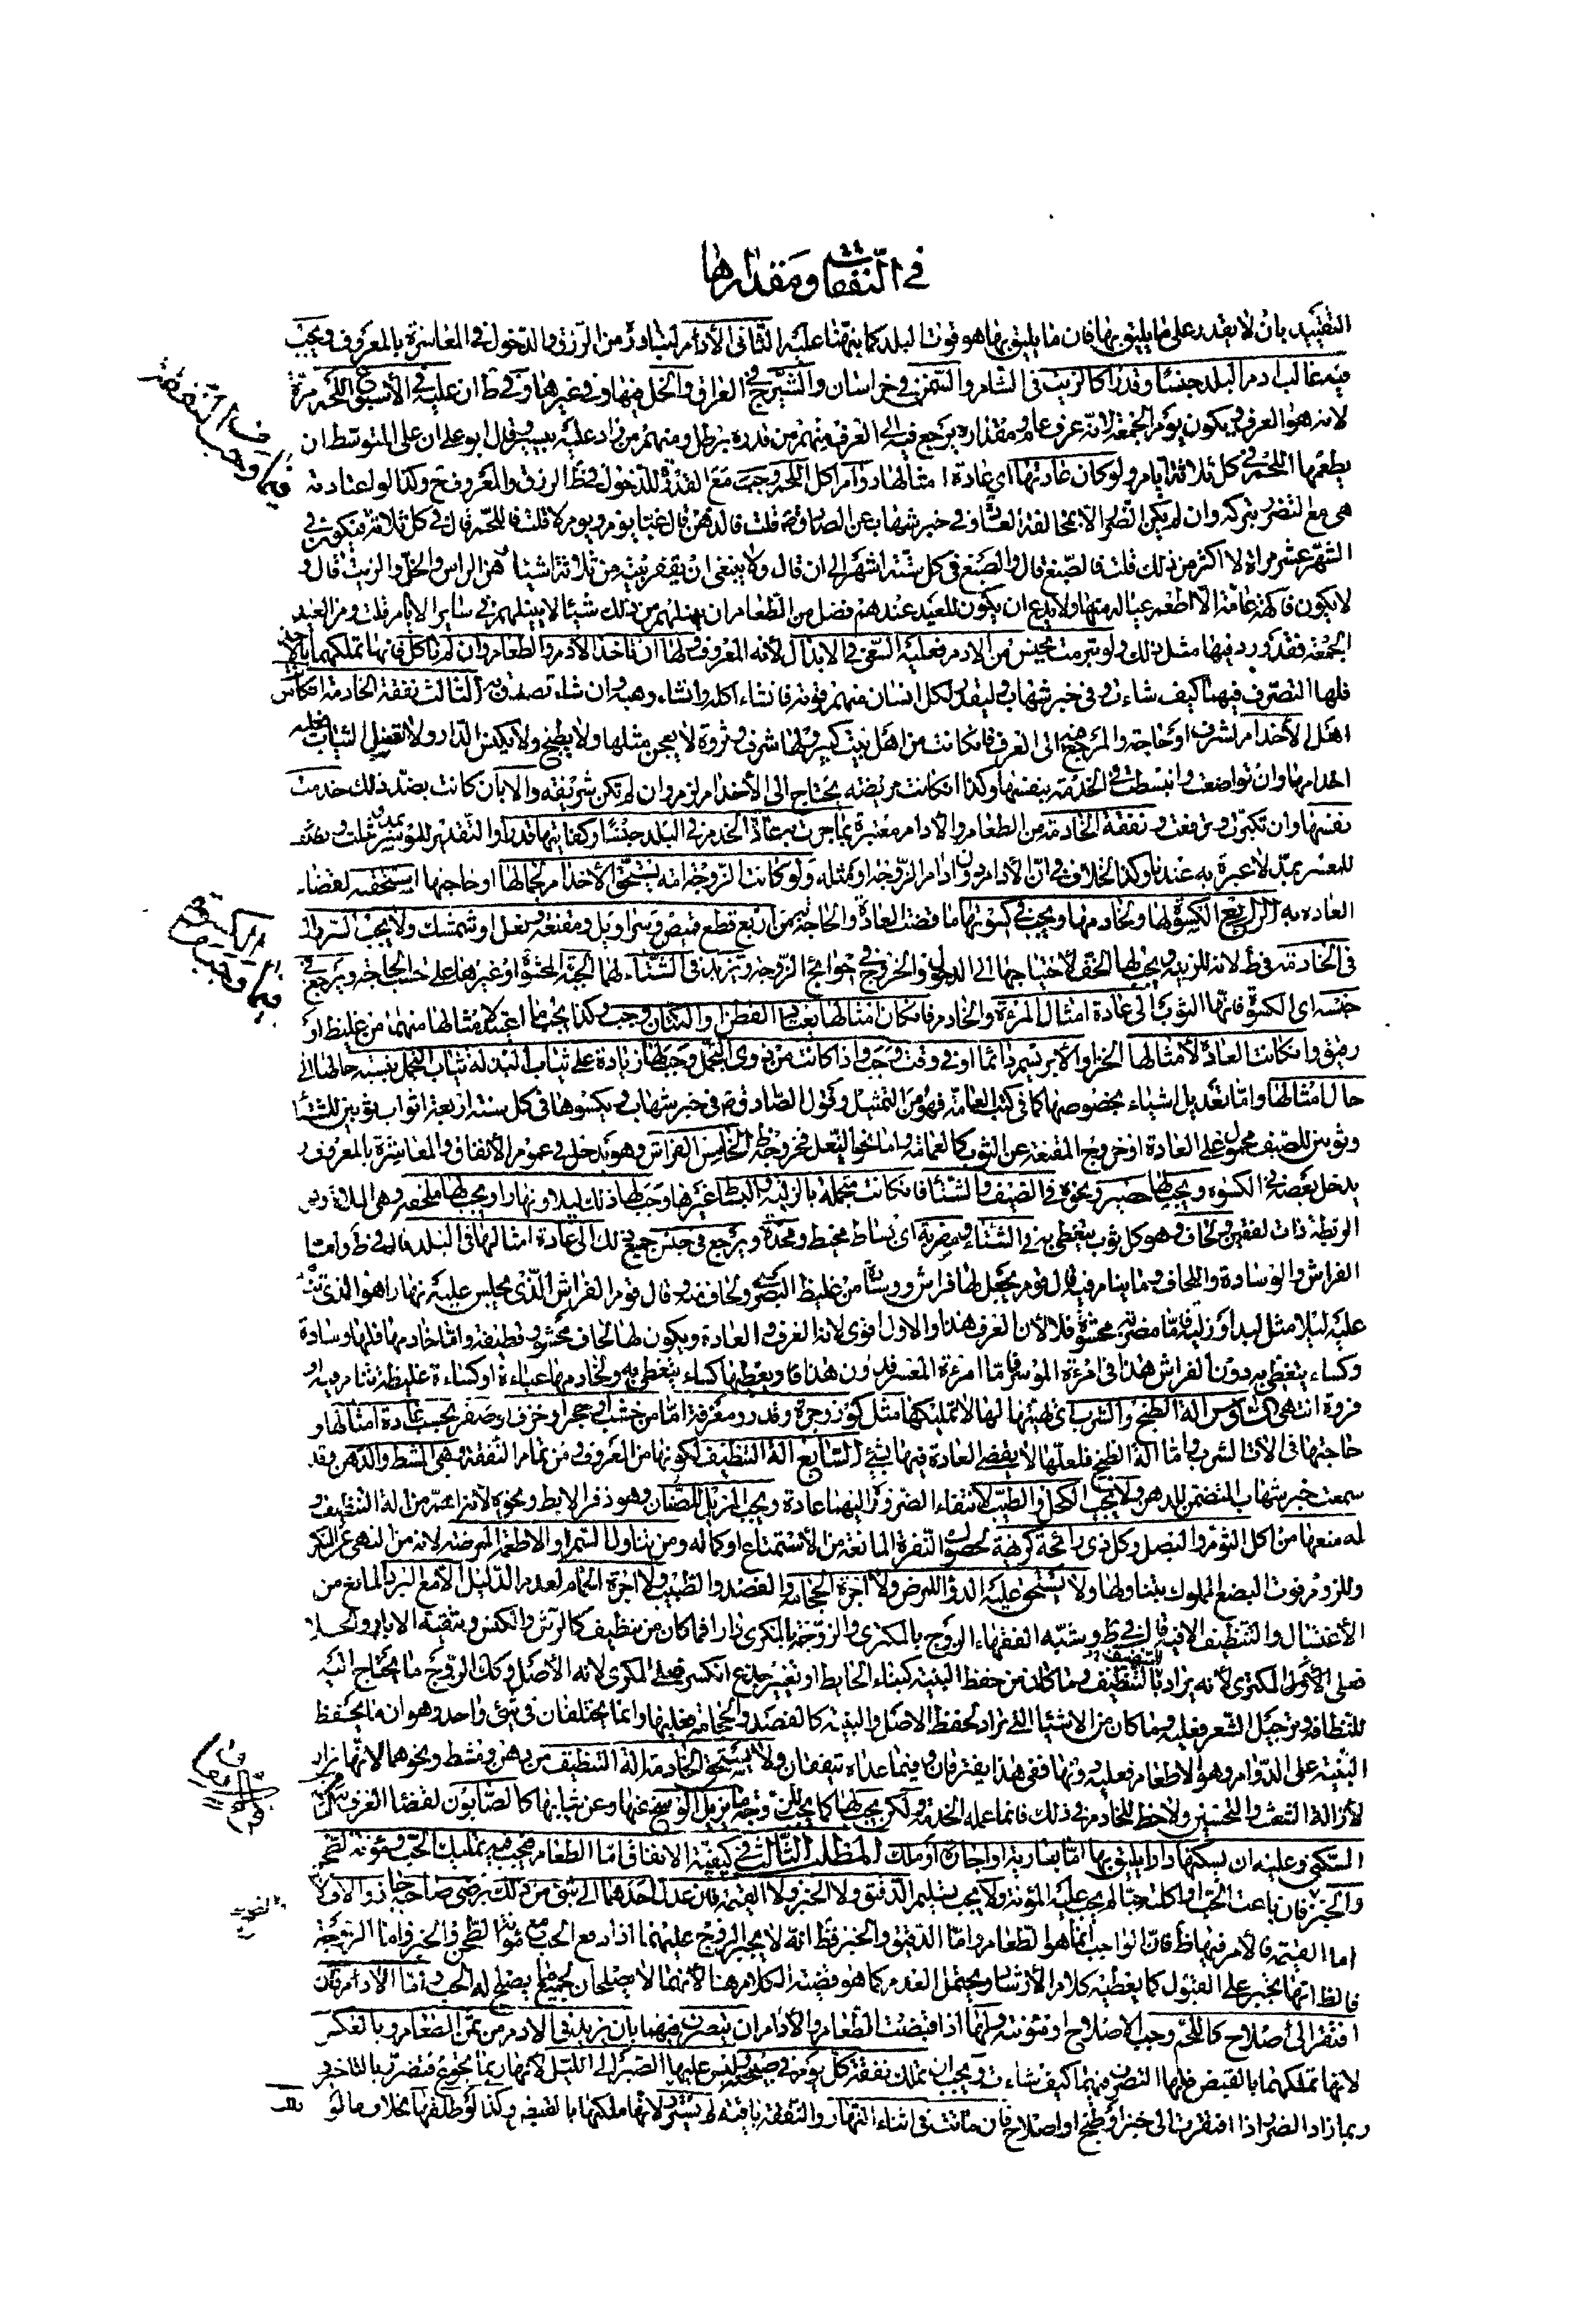 في النفقات ومقدارها
التقييد بان لا يقدر على ما يليق بها فان ما يليق بها هو قوت البلد كما ينهنا عليه الثاني الأدام لتساوقه من الرزق والدخول في المعاشرة بالمعروف ويجب
فيه غالب ادم البلد جنسا وقدرا كالزيت في الشام والسمن في خراسان والشيرج في العراق والخل فيها وفي غيرها وفي ط ان عليه في الأسبوع اللحم مرة
لانه هو العرف ويكون يوم الجمعة لانه عرف عام ومقداره يرجع فيه الى العرف ومنهم من قدره برطل ومنهم من زاد عليه بيسير وقال ابو علي ان على المتوسط ان
يطعمها اللحم في كل ثلاثة ايام ولو كان عادتها اي عادة امثالها دوام اكل اللحم وجب مع القدرة للدخول في ظ الرزق والمعروف وكذا لو اعتادته
هي مع التضرر بتركه وان لم يكن الضرر الا بمخالفة العادة وفي خبر شهاب عن الصادق قلت فالدهن قال غبا يوم ويوم لا قلت فاللحم قال في كل ثلاثة فيكون في
الشهر عشر مرات لا اكثر من ذلك قلت فالصبغ قال والصبغ في كل ستة اشهر الى ان قال ولا ينبغي ان يقفر بيته من ثلاثة اشياء دهن الراس والخل والزيت قال و
لا يكون فاكهة عامة الا اطعم عياله منها ولا يدع ان يكون للعيد عندهم فضل من الطعام ان ينيلهم من ذلك شيئا لا ينيلهم في ساير الايام قلت ومن العيد
الجمعة فقد ورد فيها مثل ذلك ولو تبرمت بجنس من الادم فعليه السعي في الابدال لأنه المعروف ولها ان تأخذ الأدم والطعام وان لم تاكل فانها تملكهما بالاخذ
فلها التصرف فيهما كيف شاءت وفي خبر شهاب وليقدر لكل انسان منهم قوته فان شاء اكله وان شاء وهبه وان شاء تصدق به الثالث نفقة الخادمة ان كانت
اهل الأخدام لشرف او حاجة والمرجع فيه الى العرف فان كانت من اهل بيت كبير ولها شرف وثروة لا يعجن مثلها ولا يطبخ ولا يكنس الدار ولا تغسل الثياب فعليه
اخدامها وان تواضعت وانبسطت في الخدمة بنفسها وكذا ان كانت مريضة يحتاج الى الأخدام لزم وان لم تكن شريفة والا بان كانت بضد ذلك خدمت
نفسها وان تكبرت وترفعت ونفقة الخادمة من الطعام والأدام معتبرة بما جرت به عادة الخدم في البلد جنسا وكفايتها قدرا والتقدير للموسر بمد وثلث ونصف
للمعسر بمد لا عبرة به عندنا وكذا الخلاف في ان الأدام دون ادام الزوجة او مثله ولو كانت الزوجة امة يستحق الأخدام لجمالها او حاجتها استحقته لقضاء
العادة به الرابع الكسوة لها ولخادمها ويجب في كسوتها ما قضت العادة والحاجة به من اربع قطع قميص وسراويل ومقنعة ونعل او شمشك ولا يجب السراويل
في الخادمة في ظ لانه للزينة ويجب لها الخف لاحتياجها الى الدخول والخروج في حوائج الزوجة وتزيد في الشتاء لهما الجبة المحشوة او غيرها على حسب الحاجة ويرجع في
جنسه اي الكسوة فانها الثوب الى عادة امثال المرءة والخادم فان كان امثالها يعتاد القطن او الكتان وجب وكذا يجب ما اعتيد لامثالها منهما من غليظ او
رقيق وان كانت العادة لأمثالها الخز او الأبريسم دائما او في وقت وجب واذا كانت من ذوي التجمل وجب لها زيادة على ثياب البذلة ثياب التجمل بنسبة حالها الى
حال امثالها واما تعديل اشياء بخصوصها كما في كتب العامة فهو من التمثيل وقول الصادق في خبر شهاب ويكسوها في كل سنة اربعة اثواب ثوبين للشتاء
وثوبين للصيف محمول على العادة او خروج المقنعة عن الثوب كالعمامة واما نحو النعل فخروجه ظ الخامس الفراش وهو يدخل في عموم الأنفاق والمعاشرة بالمعروف و
يدخل بعضه في الكسوة ويجب لها حصير ونحوه في الصيف والشتاء فان كانت متجملة بالزلية والبساط غيرها وجب لها ذلك ليلا ونهارا ويجب لها ملحفة وهي الملاءة
الريطة ذات لفقين ولحاف وهو كل ثوب يتغطى به في الشتاء ومضربة اي بساط مخيط ومخدة ويرجع في جنس جميع ذلك الى عادة امثالها في البلد قال في ط وامتا
الفراش والوسادة واللحاف وما ينام فيه قال قوم يجعل لها فراش ووسادة من غليظ البصري ولحاف منه وقال قوم الفراش الذي يجلس عليه نهارا هو الذي تنام
عليه ليلا مثل لبد او زلية فاما مضربة محشوة فلا لأن العرف هذا والاول اقوى لانه العرف والعادة ويكون لها لحاف محشو وقطيفة واما خادمها فلها وسادة
وكساء يتغطى به دون الفراش هذا في امرءة الموسر فاما امرءة المعسر فدون هذا قال ويعطيها كساء يتغطى به ولخادمها عباءة او كساءة غليظة تنام فيه او
فروة انتهى السادس الة الطبخ والشرب اي تهيئتها لها لا تمليكها مثل كوز وجرة وقدر ومغرفة اما من خشب او حجر او خزف او صفر بحسب عادة امثالها و
حاجتها في الات الشرب واما الة الطبخ فلعلها لا يقضى العادة فيها بشيء السابع الة التنظيف لكونها من المعروف ومن تمام النفقة وهي المشط والدهن وقد
سمعت خبر شهاب المتضمن للدهن ولا يجب الكحل والطيب لانتفاء الضرورة اليهما عادة ويجب المزيل للصنان وهو ذفر الابط ونحوه لأنه من الة التنظيف و
له منعها من اكل الثوم والبصل وكل ذي رائحة كريهة لحصول النفرة المانعة من الأستمتاع او كماله ومن تناول السم او الاطعمة الممرضة لانه من النهي عن المنكر
وللزوم فوت البضع المملوك بتناولها ولا يستحق عليه الدواء للمرض ولا اجرة الحجامة والفصد والطبيب ولا اجرة الحمام لعدم الدليل الا مع البرد المانع من
الأغتسال والتنظيف الا فيه قال في ط وشبه الفقهاء الزوج بالمكتري والزوجة بالمكري دارا فما كان من تنظيف كالرش والكنس وتنقية الابار والخلاء
فعلى الأول المكتري لأنه يراد بالتنظيف وما كان من حفظ البنية كبناء الحايط او تغيير جذع انكسر فعلى المكري لانه الأصل وكذا الزوج ما يحتاج اليه
للنظافة وترجيل الشعر فعليه وما كان من الاشياء التي تراد لحفظ الاصل والبنية كالفصد والحجامة فعليها وانما يختلفان في شيء واحد وهو ان ما يحفظ
البنية على الدوام وهو الأطعام فعليه دونها ففي هذا يفترقان وفيما عداه يتفقان ولا يستحق الخادمة الة التنظيف من دهن ومشط ونحوهما لانها تراد
لأزالة الشعث والتحسين ولا حظ للخادم في ذلك فانما عمله الخدمة ولكن يجب لها كما يجب للزوجة ما يزيل الوسخ عنها وعن ثيابها كالصابون لقضاء العرف
السكنى وعليه ان يسكنها دارا يليق بها اما بعارية او اجارة او ملك المطلب الثالث في كيفية الانفاق اما الطعام فيجب فيه تمليك الحب ومؤنة الطحن
والخبز فان باعت الحب او اكلته حبا لم يجب عليه المؤنة ولا يجب تسليم الدقيق ولا الخبز ولا القيمة فان عدل احدهما الى شيء من ذلك برضى صاحبه جاز والا فلا
اما القيمة فالأمر فيها ظ فان الواجب انما هو الطعام واما الدقيق والخبز فظ انه لا يجبر الزوج عليهما اذا دفع الحب مع مؤنة الطحن والخبز واما الزوجة
فالظ انها تجبر على القبول كما يعطيه كلام الأرشاد ويحتمل العدم كما هو قضية الكلام هنا لأنهما لا يصلحان لجميع ما يصلح له الحب واما الأدام فان
افتقر الى اصلاح كاللحم وجب الاصلاح او مؤنته ولها اذا قبضت الطعام والأدام ان يتصرف فيهما بان يزيد في الادم من ثمن الطعام وبالعكس
لانها تملكهما بالقبض فلها التصرف فيهما كيف شاءت ويجب ان تملك نفقة كل يوم في صبيحته وليس عليها الصبر الى الليل لانها ربما تجوع فتضرر بالتاخير و
ربما زاد الضرر اذا افتقرت الى خبز او طبخ او اصلاح فان ماتت في اثناء النهار والنفقة باقية لم يسترد لانها ملكتها بالقبض وكذا لو طلقها بخلاف ما لو
فيما وجب في النفقة
فيما وجب من الكسوة